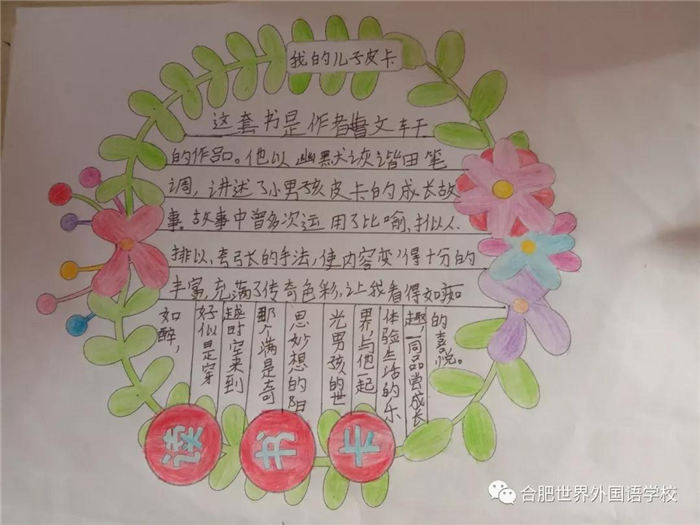 我的儿子皮卡
这套书是作者曹文轩
的作品。他以幽默诙谐田笔
调,讲述了小男孩皮卡的成长故
事。故事中曾多次运用了比喻、拟人、
排比、夸张的手法,使内容变得十分的
丰富,充满了传奇色彩,让我看得如痴
如醉,
好似是穿
越时空来到
那个满是奇
思妙想的阳
光男孩的世
界,与他一起
体验生活的乐
趣,一同品尝成长
的喜悦。
读书卡
合肥世界外国语学校